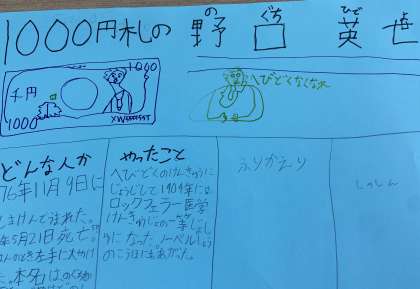 1000円札の野口英世
の ぐち ひで よ
1000
千円
1000
XW
へびどくなくなれ
どんな人か
76年11月9日に
年5月21日死亡。
のとき左手に大やけ
た。本名は
やったこと
へびどくのけんきゅうに
して1904年には
ロックフェラー医学
けんきゅうじょの一等じょしゅ
になった。ノーベルしょう
のこうほにもあがった。
ふりかえり
しゅしん